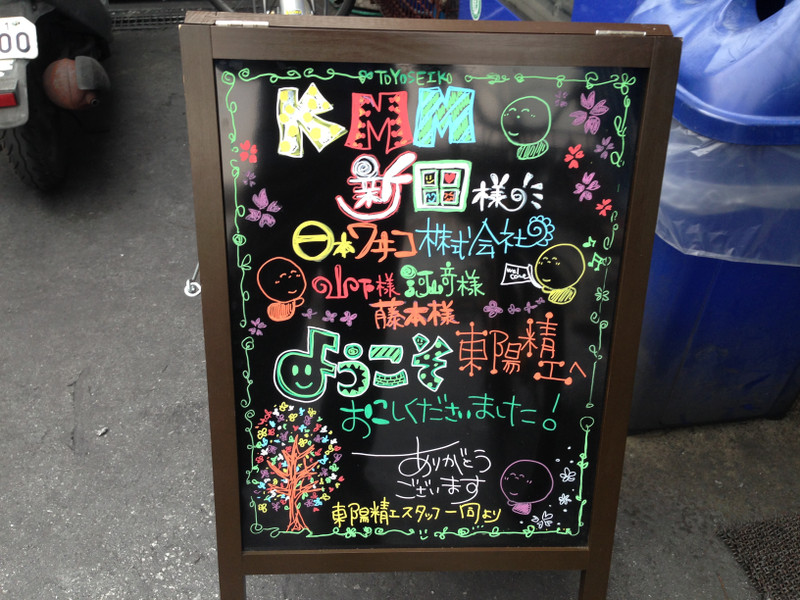 00
TOYOSEIKO
KMM
新田様
日本ワキコ株式会社
山下様 江崎様
welcome
藤本様
ようこそ東陽精工へ
おこしくださいました!
ありがとう
ございます
東陽精工スタッフ一同より